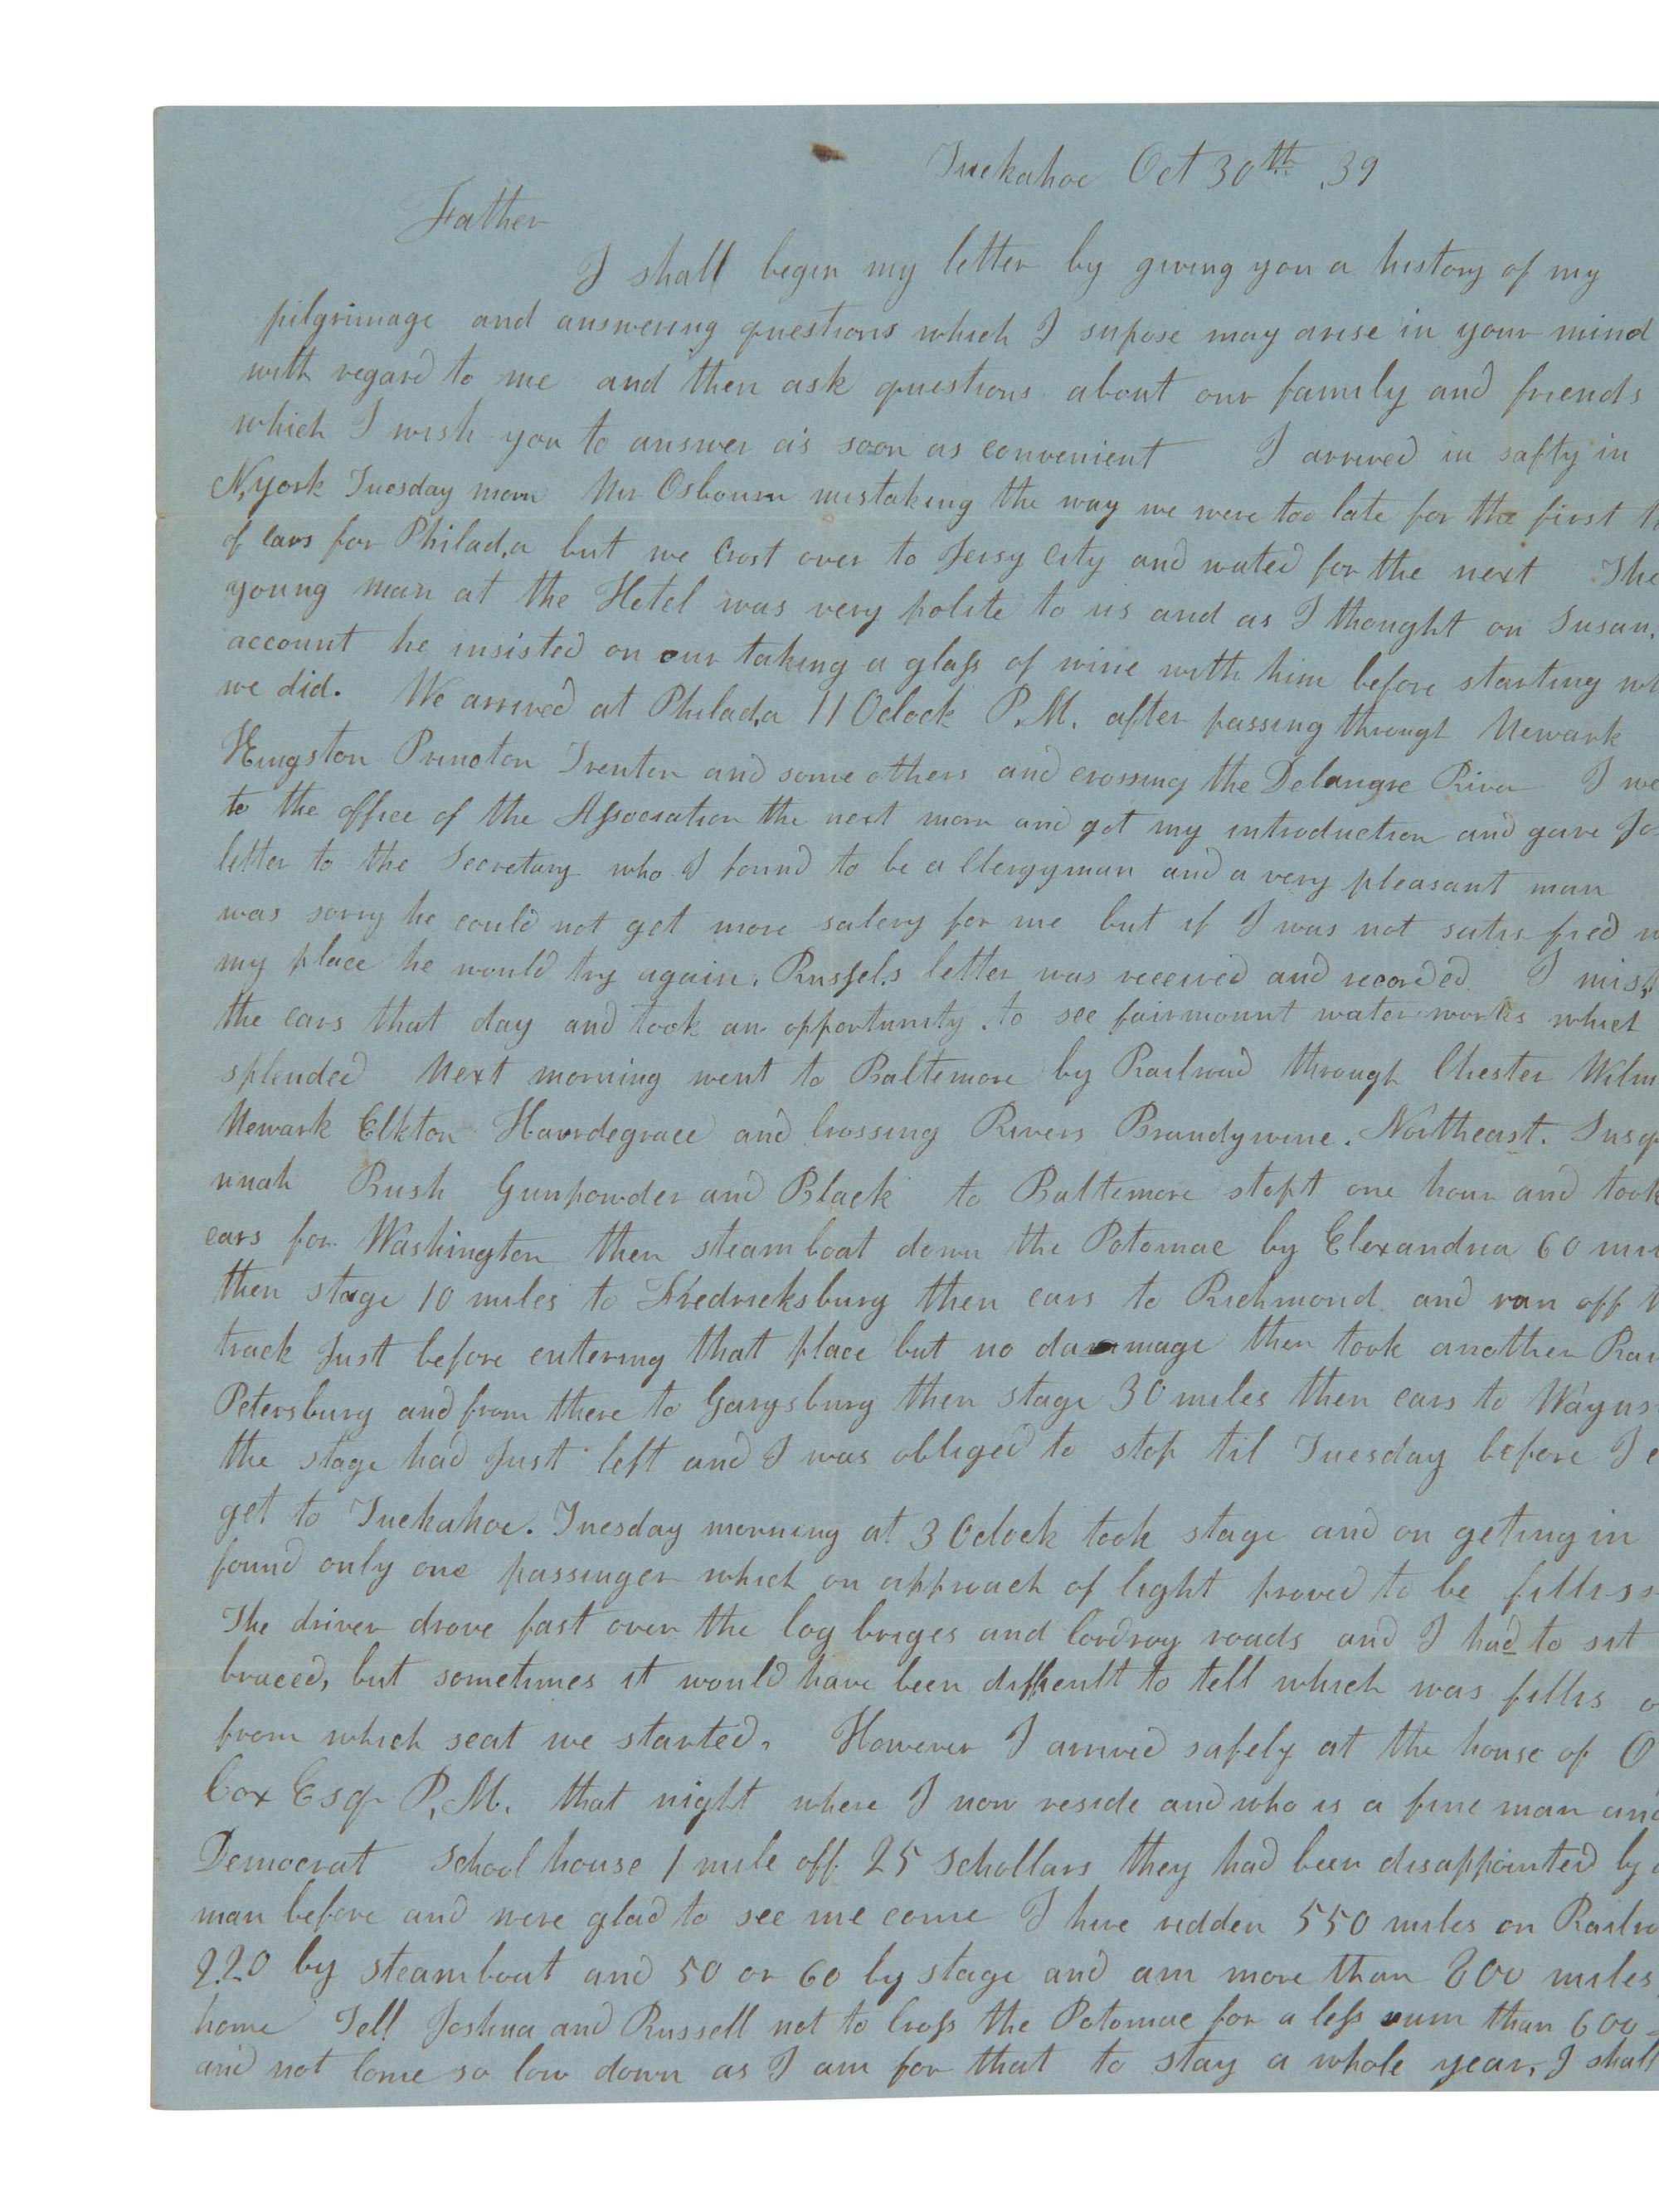 Tuckahoe Oct 30th .39
Father
I shall begin my letter by giving you a history of my
pilgrimage and answering questions which I supose may arise in your mind
with regard to me and then ask questions about our family and friends
which I wish you to answer as soon as convenient I arrived in safty in
N,york Tuesday morn Mr Osbourn mistaking the way we were too late for the first
of cars for Philad,a but we Crost over to Jersy City and wated for the next The
young man at the Hotel was very polite to us and as I thought on Susan,
account he insisted on our taking a glass of wine with him before starting
we did. We arrived at Philad,a 11 Oclock P.M. after passing through Newark
Kingston Princton Trenton and some others and crossing the Delaware River I
to the office of the Association the next morn and got my introduction and gave
letter to the Secretary who I found to be a Clergyman and a very pleasant man
was sorry he could not get more salery for me but if I was not satisfied
my place he would try again. Russel,s letter was received and recorded I mis,
the cars that day and took an opportunity to see fairmount water works which
splended Next morning went to Baltimore by Railroad through Chester Wilm
Newark Elkton Havrdegrace and Crossing Rivers Brandywine. Northeast. Susq
nnah Bush Gunpowder and Black to Baltimore stopt one hour and took
cars for Washington then steam boat down the Potomac by Elexandria 60
then stage 10 miles to Fredricksburg then cars to Richmond and ran off
track Just before entering that place but no dammage then took another
Petersburg and from there to Garysburg then stage 30 miles then cars to Wayns
the stage had Just left and I was obliged to stop til Tuesday before I
get to Tuckahoe. Tuesday morning at 3 Oclock took stage and on geting in
found only one passinger which on approach of light proved to be
The driver drove fast over the log briges and Cordroy roads and I had to sit
braced, but sometimes it would have been difficult to tell which was fillis
from which seat we started. However I arrived safely at the house of O
Cox Esqr P.M. that night where I now reside and who is a fine man and
Democrat School house 1 mile off 25 Schollars they had been disappointed by
man before and were glad to see me come I have ridden 550 miles on
220 by steamboat and 50 or 60 by stage and am more than 800 miles
home Tell Joshua and Russell not to Cross the Potomac for a less sum than 600
and not Come so low down as I am for that to stay a whole year, I shall